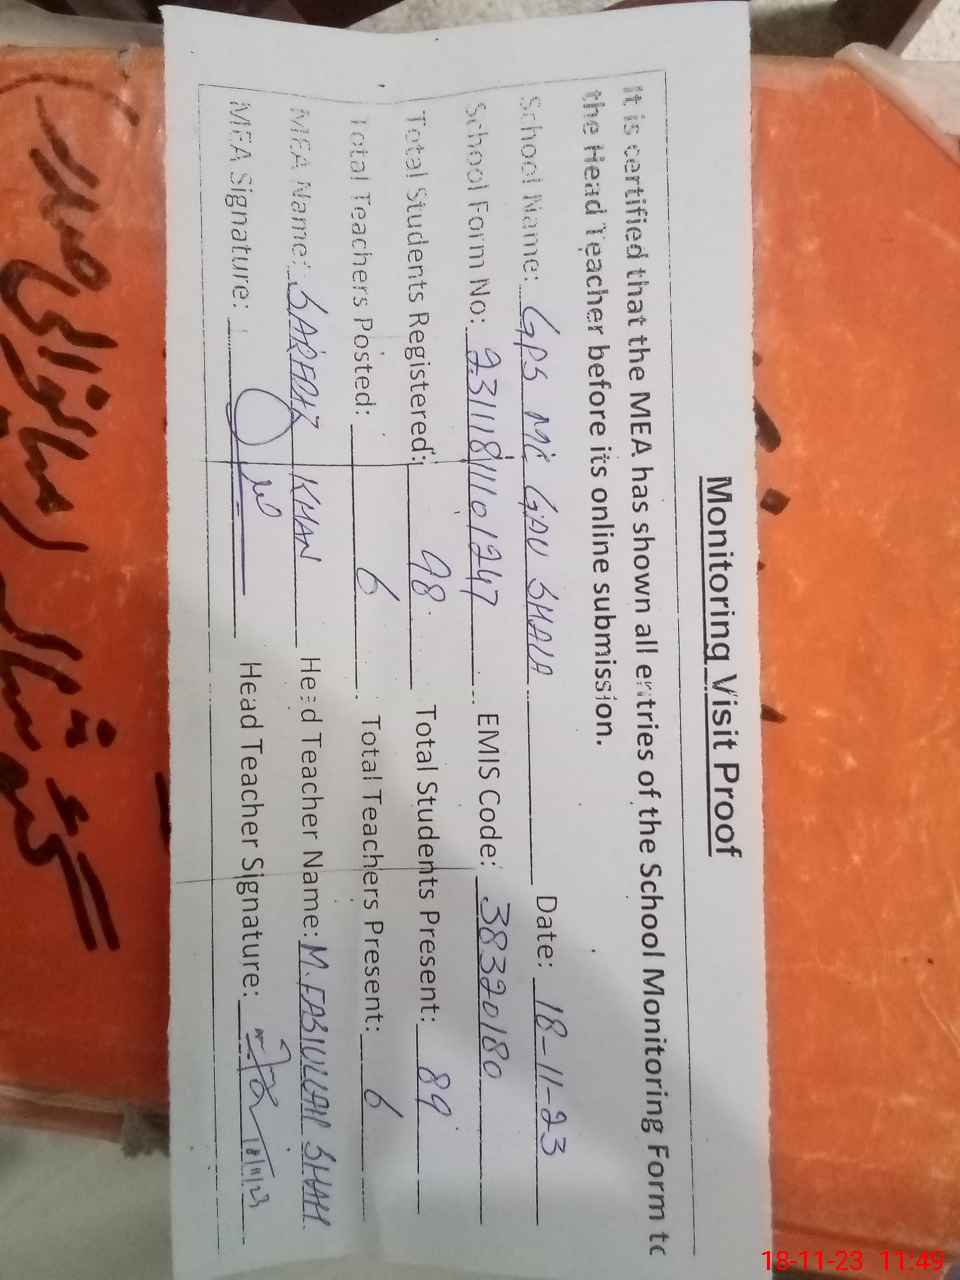 Monitoring Visit Proof
It is certified that the MEA has shown all entries of the School Monitoring Form to
the Head Teacher before its online submission.
School Name: GPS Mc GDU SHAIA Date: 18-11-23
School Form No: 231118111101247 EMIS Code: 38320180
Total Students Registered: 98 Total Students Present: 89
Total Teachers Posted: 6 Total Teachers Present: 6
MEA Name: KHAN Head Teacher Name: M. SHAH
MEA Signature: Head Teacher Signature: 18/11/23
18-11-23 11:49